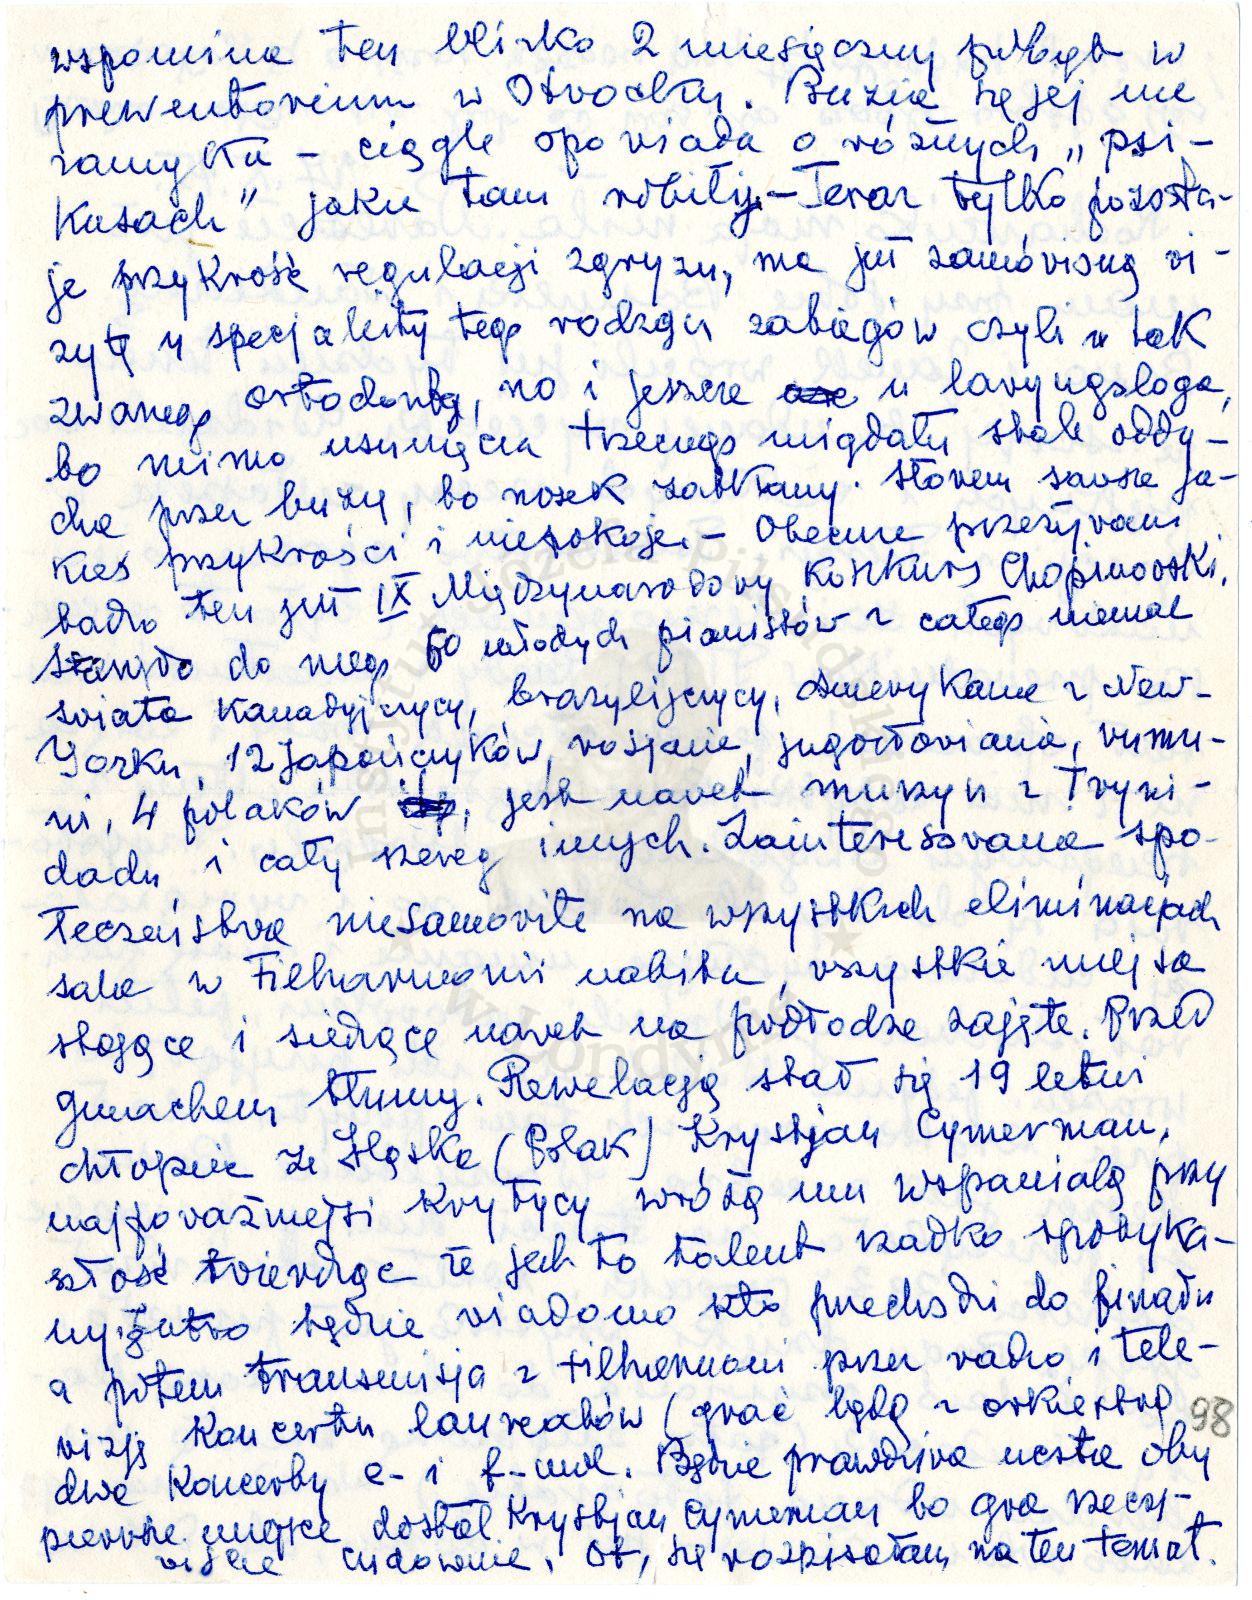 wspomina ten blisko 2 miesięczny pobyt w
prewentorium w Otwocku. Buzia się jej nie
zamyka – ciągle opowiada o różnych „psi-
kusach" jakie tam robiły. – Teraz tylko pozosta-
je przykrość regulacji zgryzu, ma już zamówioną wi-
zytę u specjalisty tego rodzaju zabiegów czyli u tak
zwanego ortodonty, no i jeszcze u laryngologa,
bo mimo usunięcia trzeciego migdału stale oddy-
cha przez buzię, bo nosek zatkany. Słowem zawsze ja-
kieś przykrości i niepokoje. – Obecnie przeżywam
bardzo ten już IX Międzynarodowy Konkurs Chopinowski,
stanęło do niego 60 młodych pianistów z całego niemal
świata Kanadyjczycy, brazylijczycy, Amerykanie z New-
Yorku, 12 Japończyków, rosjanie, jugosłowianie, rumu-
ni, 4 polaków, jest nawet murzyn z Tryni-
dadu i cały szereg innych. Zainteresowanie spo-
łeczeństwa niesamowite na wszystkich eliminacjach
sala w Filharmonii nabita, wszystkie miejsca
stojące i siedzące nawet na podłodze zajęte. Przed
gmachem tłumy. Rewelacją stał się 19 letni
chłopiec ze Śląska (Polak) Krystjan Cymerman,
najpoważniejsi krytycy wróżą mu wspaniałą przy
szłość twierdząc że jest to talent rzadko spotyka-
ny. Jutro będzie wiadomo kto przechodzi do finału
a potem transmisja z Filharmonii przez radio i tele-
wizję koncertu laureatów (grać będą z orkiestrą
dwa koncerty e- i f-mol. Będzie prawdziwa uczta oby
pierwsze miejsce dostał Krystjan Cymerman bo gra rzeczy-
wiście cudownie. Ot, się rozpisałam na ten temat.
98
Instytut Józefa Piłsudskiego
w Londynie